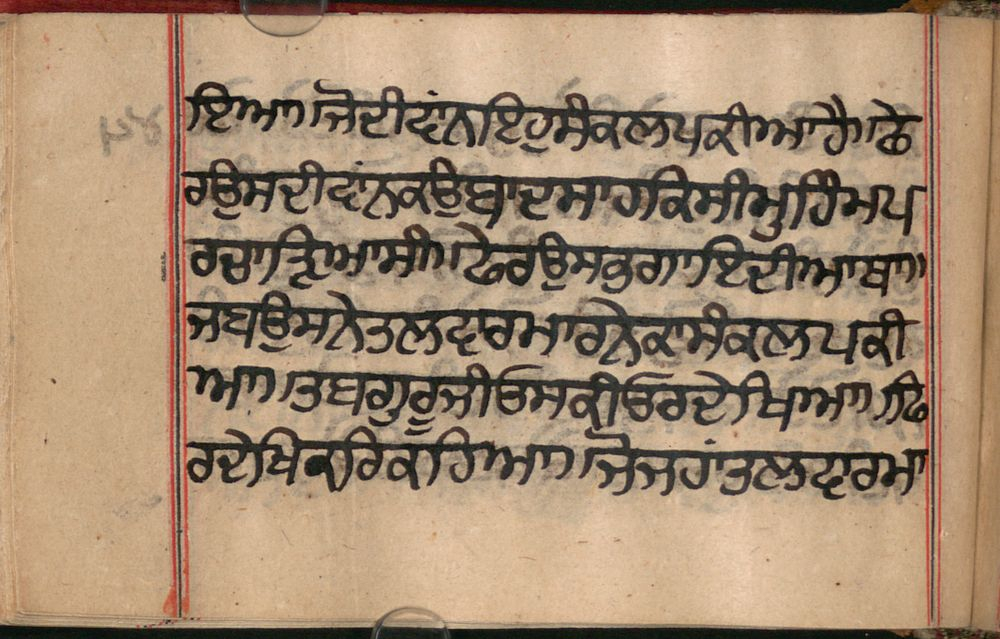 ਇਆ॥ਜੋਦੀਵਾਂਨਇਹੁਸੰਕਲਪਕੀਆਹੈ॥ਫੇ
ਰਉਸਦੀਵਾਂਨਕਉਬਾਦਸਾਹਕਿਸੀਮੁਹਿੰਮਪ
ਰਚਾੜ੍ਹਿਆਸੀ॥ਫੇਰਉਸਕੁਰਾਇਦੀਆਥਾ॥
ਜਬਉਸਨੇਤਲਵਾਰਮਾਰਨੇਕਾਸੰਕਲਪਕੀ
ਆ॥ਤਬਗੁਰੂਜੀਓਸਕੀਓਰਦੇਖਿਆ॥ਫਿ
ਰਦੇਖਿਕਰਿਕਹਿਆ॥ਜੋਜਹਾਂਤਲਵਾਰਮਾ